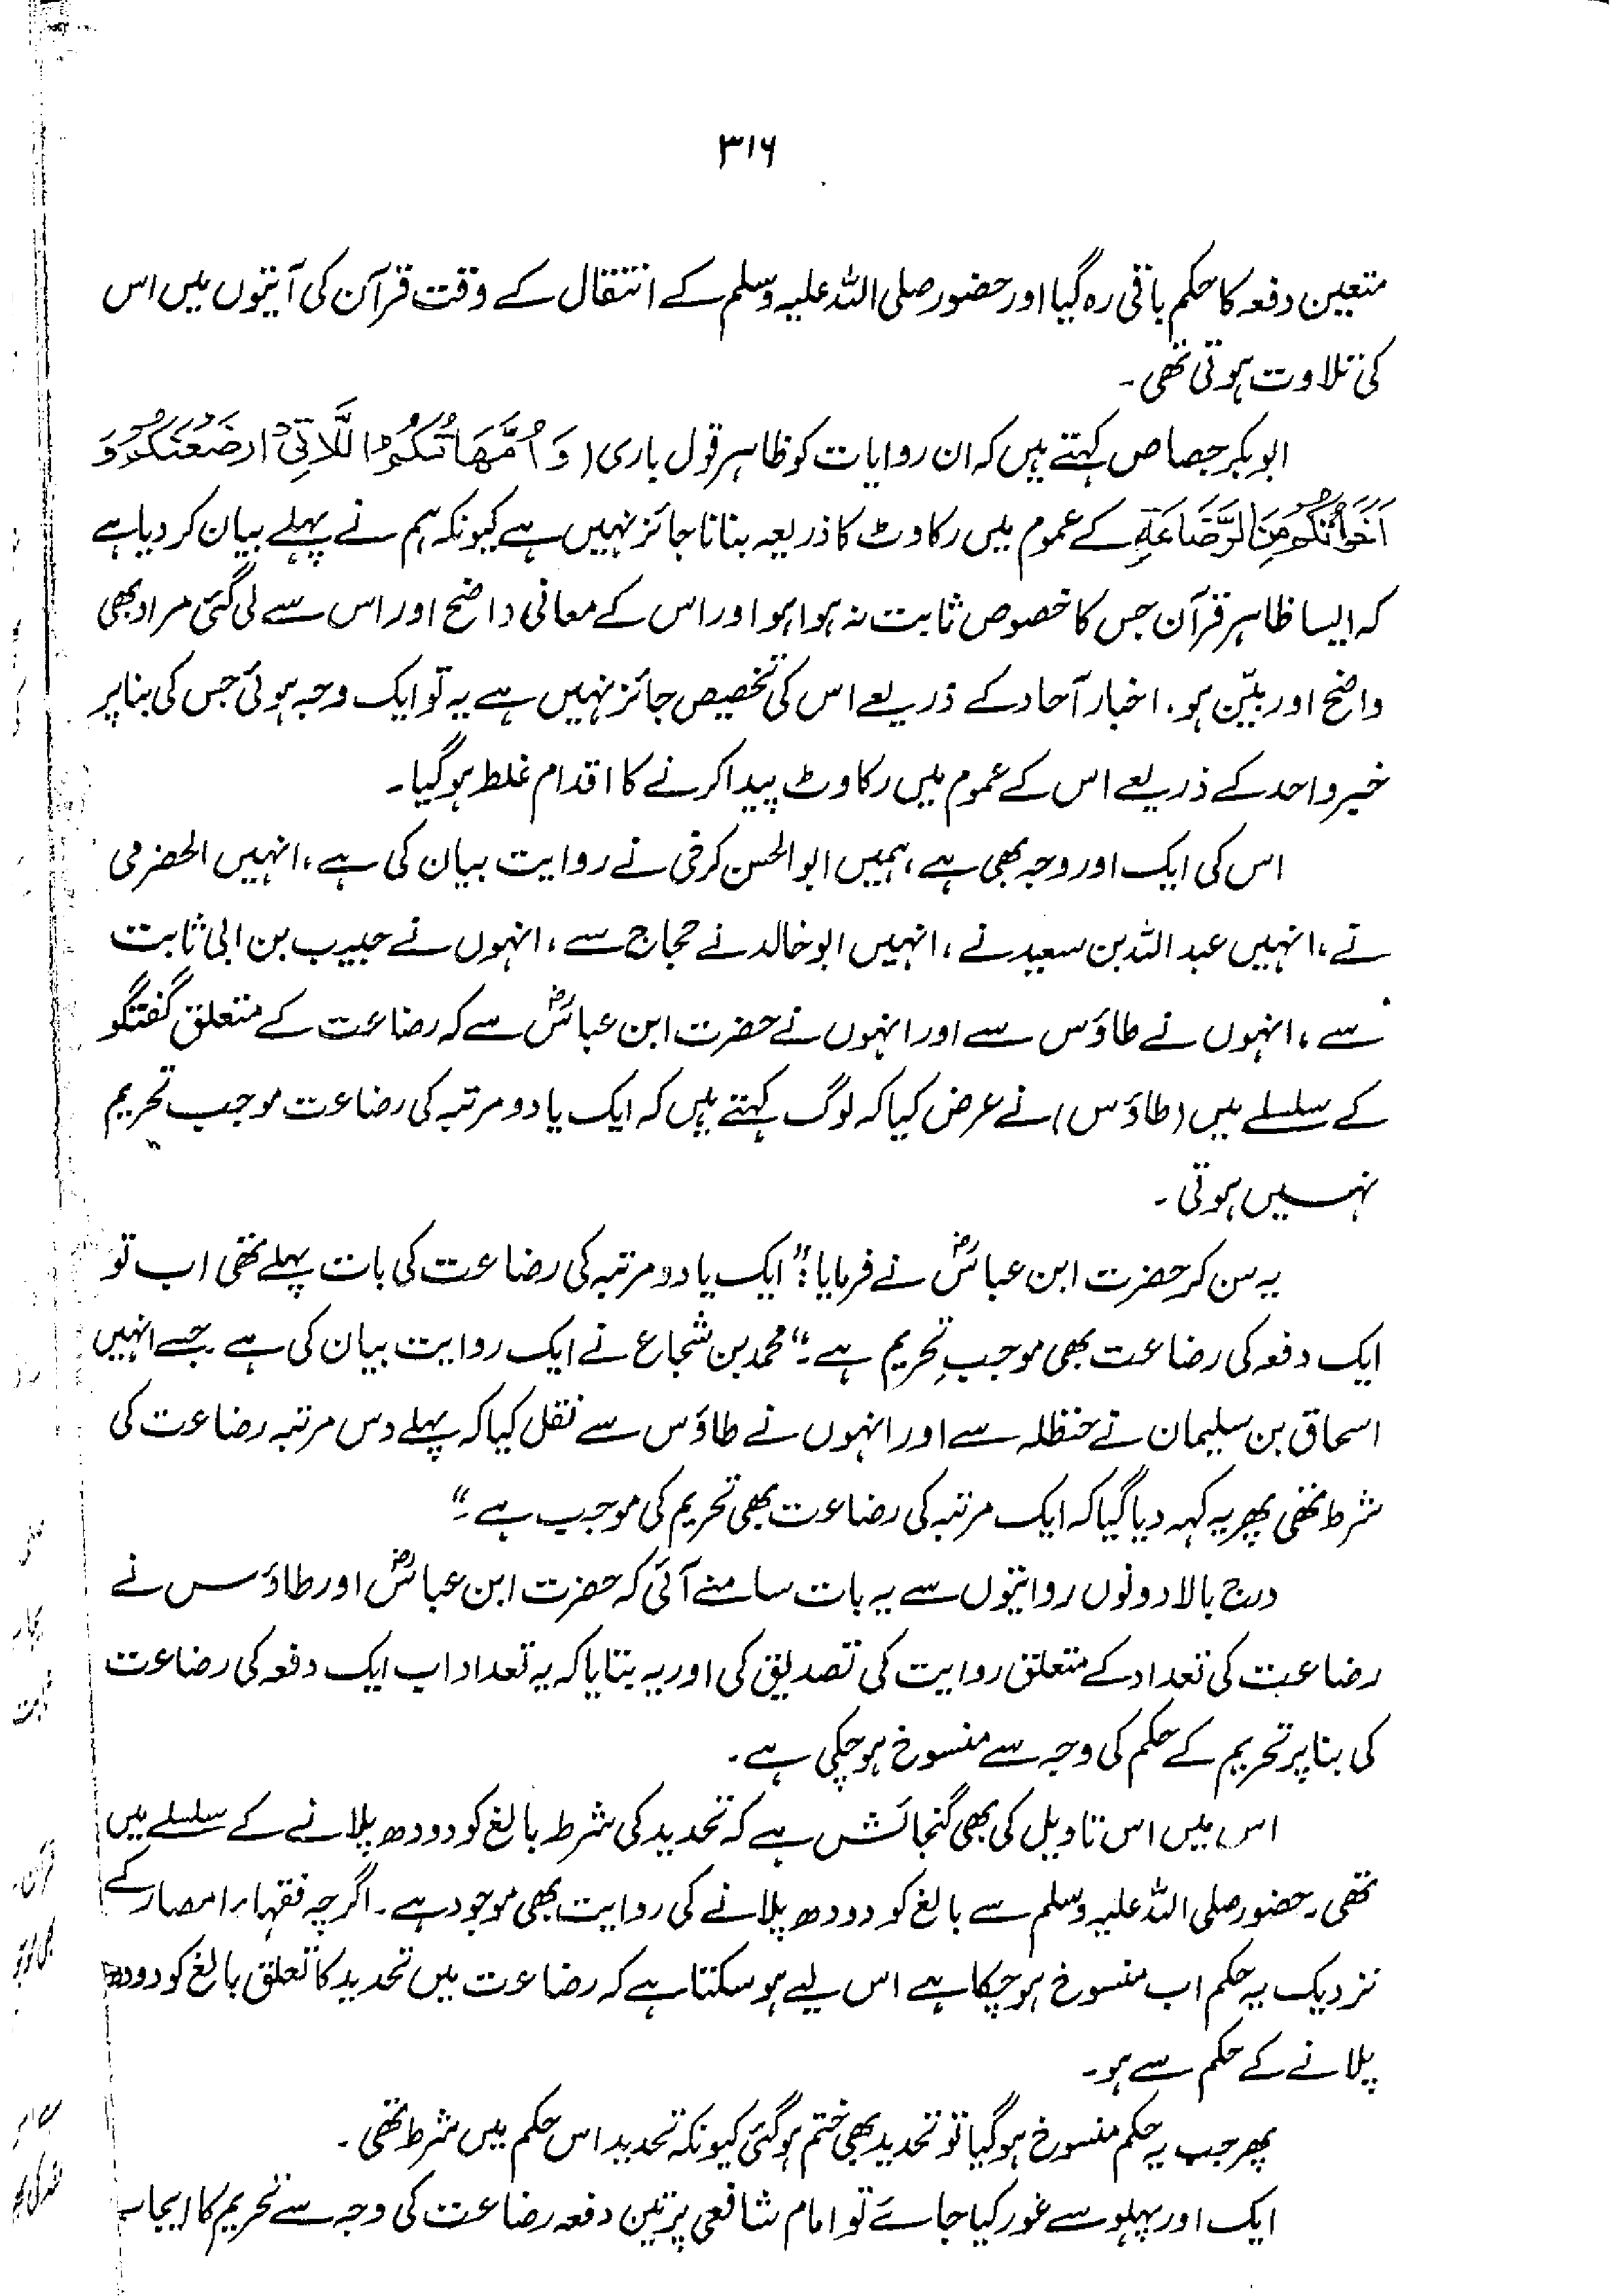 ۳۱۶
متعین دفعہ کا حکم باقی رہ گیا اور حضور صلی اللہ علیہ وسلم کے انتقال کے وقت قرآن کی آیتوں میں اس
کی تلاوت ہوتی تھی۔
ابوبکر جصاص کہتے ہیں کہ ان روایات کو ظاہر قول باری (وَ اُمَّهَاتُكُمُ اللَّاتِیْ اَرْضَعْنَكُمْ وَ
اَخَوَاتُكُمْ مِنَ الرَّضَاعَةِ کے عموم میں رکاوٹ کا ذریعہ بنانا جائز نہیں ہے کیونکہ ہم نے پہلے بیان کر دیا ہے
کہ ایسا ظاہر قرآن جس کا خصوص ثابت نہ ہوا ہو اور اس کے معانی واضح اور اس سے لی گئی مراد بھی
واضح اور بیّن ہو۔ اخبار آحاد کے ذریعے اس کی تخصیص جائز نہیں ہے یہ تو ایک وجہ ہوئی جس کی بنا پر
خبر واحد کے ذریعے اس کے عموم میں رکاوٹ پیدا کرنے کا اقدام غلط ہو گیا۔
اس کی ایک اور وجہ بھی ہے، ہمیں ابوالحسن کرخی نے روایت بیان کی ہے، انہیں الحضرمی
نے، انہیں عبداللہ بن سعید نے، انہیں ابوخالد نے حجاج سے، انہوں نے حبیب بن ابی ثابت
سے، انہوں نے طاؤس سے اور انہوں نے حضرت ابن عباسؓ سے کہ رضاعت کے متعلق گفتگو
کے سلسلے میں (طاؤس) نے عرض کیا کہ لوگ کہتے ہیں کہ ایک یا دو مرتبہ کی رضاعت موجب تحریم
نہیں ہوتی۔
یہ سن کر حضرت ابن عباسؓ نے فرمایا: "ایک یا دو مرتبہ کی رضاعت کی بات پہلے تھی اب تو
ایک دفعہ کی رضاعت بھی موجبِ تحریم ہے۔" محمد بن شجاع نے ایک روایت بیان کی ہے۔ جسے انہیں
اسحاق بن سلیمان نے حنظلہ سے اور انہوں نے طاؤس سے نقل کیا کہ پہلے دس مرتبہ رضاعت کی
شرط تھی پھر یہ کہہ دیا گیا کہ ایک مرتبہ کی رضاعت بھی تحریم کی موجب ہے۔"
درج بالا دونوں روایتوں سے یہ بات سامنے آئی کہ حضرت ابن عباسؓ اور طاؤس نے
رضاعت کی تعداد کے متعلق روایت کی تصدیق کی اور یہ بتایا کہ یہ تعداد اب ایک دفعہ کی رضاعت
کی بنا پر تحریم کے حکم کی وجہ سے منسوخ ہو چکی ہے۔
اس میں اس تاویل کی بھی گنجائش ہے کہ تحدید کی شرط بالغ کو دودھ پلانے کے سلسلے میں
تھی۔ حضور صلی اللہ علیہ وسلم سے بالغ کو دودھ پلانے کی روایت بھی موجود ہے۔ اگرچہ فقہاء امصار کے
نزدیک یہ حکم اب منسوخ ہو چکا ہے اس لیے ہو سکتا ہے کہ رضاعت میں تحدید کا تعلق بالغ کو دودھ
پلانے کے حکم سے ہو۔
پھر جب یہ حکم منسوخ ہو گیا تو تحدید بھی ختم ہو گئی کیونکہ تحدید اس حکم میں شرط تھی۔
ایک اور پہلو سے غور کیا جائے تو امام شافعی پر تین دفعہ رضاعت کی وجہ سے تحریم کا ایجاب